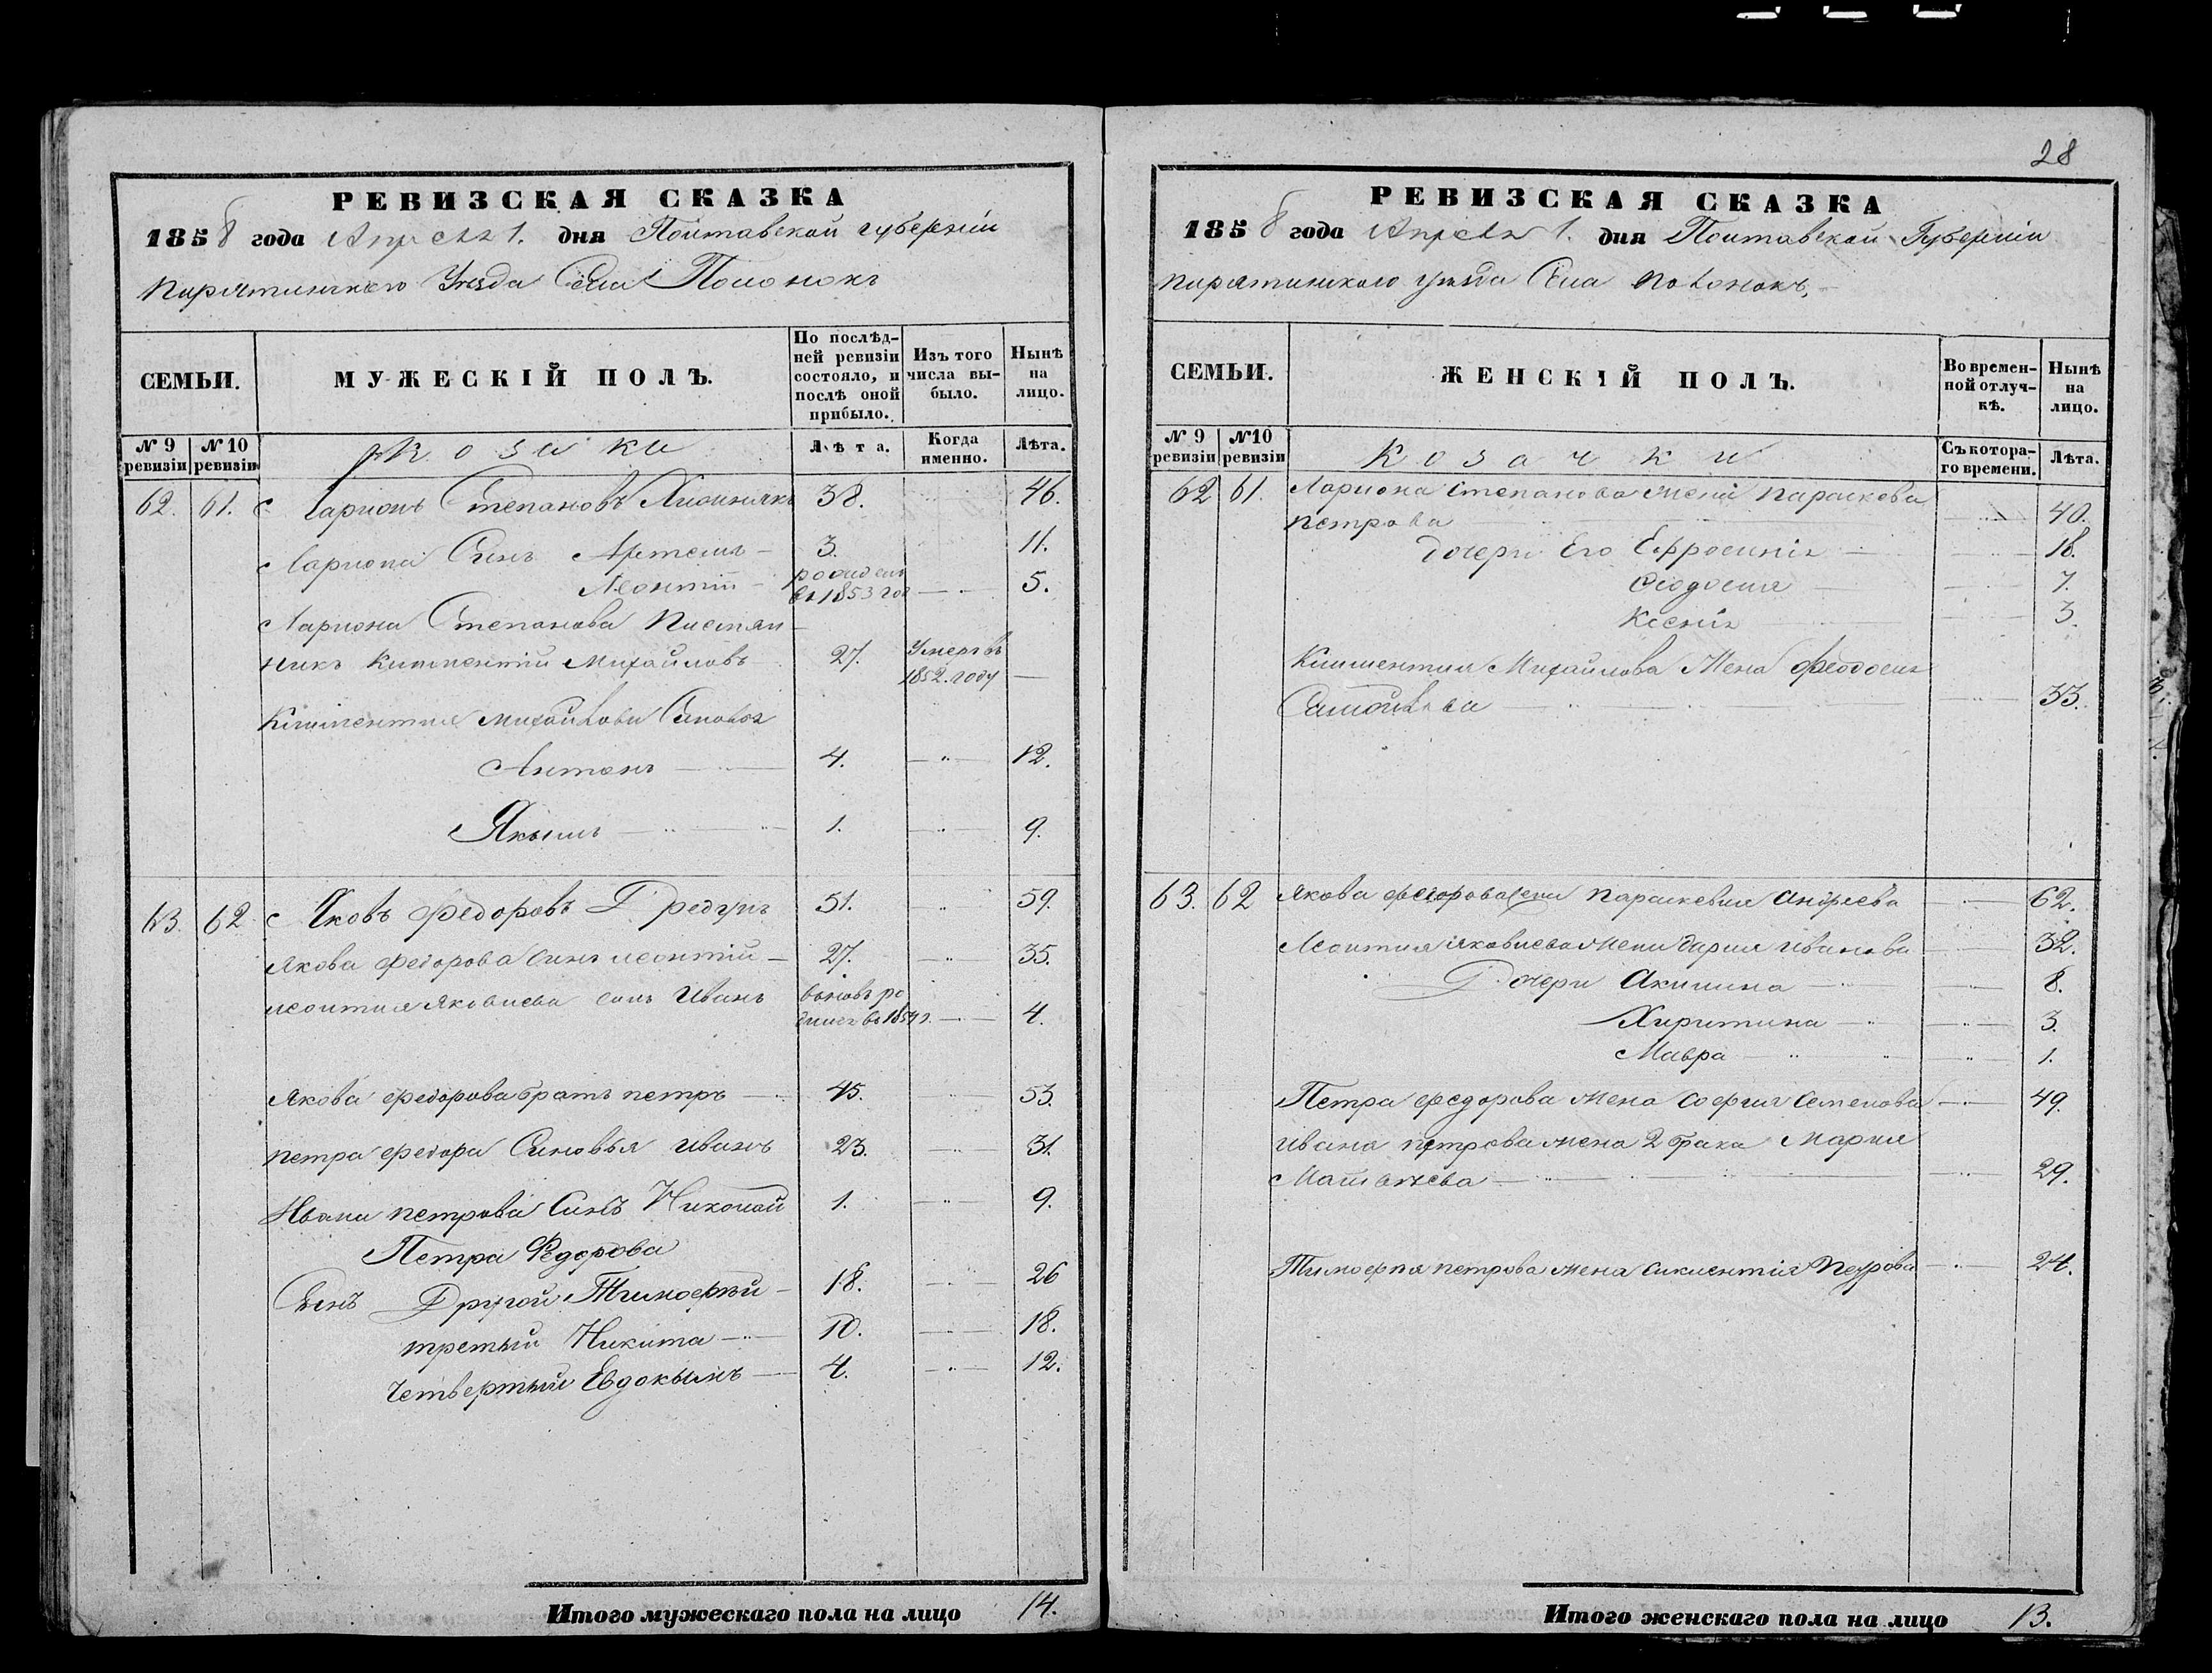 28
РЕВИЗСКАЯ СКАЗКА
1858 года Апреля 1. дня Полтавской губернии
Пирятинского Уезда Села Полонокъ
СЕМЬИ.
МУЖЕСКІЙ ПОЛЪ.
По послѣд-
ней ревизіи
состояло, и
послѣ оной
прибыло.
Изъ того
числа вы-
было.
Нынѣ
на
лицо.
№ 9 ревизіи
№ 10 ревизіи
Козаки
Лѣта.
Когда именно.
Лѣта.
62. 61. Ларионъ Степановъ 38. 46.
Лариона Синъ Артемъ — 3. 11.
Леонтій — родился въ 1853 год — 5.
Лариона Степанова Племян
никъ Климентій Михайловъ 27. Умеръ въ 1852. году —
Климентия Михайлова Синовья
Антонъ — 4. — 12.
Якымъ — 1. — 9.
63. 62 Яковъ Федоровъ 51. — 59.
Якова Федорова Синъ Леонтій — 27. — 35.
Леонтия Яковлева Синъ Иванъ вновь родился въ 1854 г. — 4.
Якова Федорова братъ Петръ — 45. — 53.
Петра Федора Синовья Иванъ 23. — 31.
Ивана Петрова Синъ Николай 1. — 9.
Петра Федорова
Сынъ Другой Тимофѣй — 18. — 26
третьій Никита — 10. — 18.
Четвертый Евдокымъ — 4. — 12.
Итого мужескаго пола на лицо 14.
РЕВИЗСКАЯ СКАЗКА
1858 года Апреля 1. дня Полтавской Губерніи
Пирятинского уезда Села Полонокъ,
СЕМЬИ.
ЖЕНСКІЙ ПОЛЪ.
Во времен-
ной отлуч-
кѣ.
Нынѣ
на
лицо.
№ 9 ревизіи
№10 ревизіи
Козачки
Съ котора-
го времени.
Лѣта.
62 61. Лариона Степанова жена Параскева
Петрова — 40.
Дочери Его Ефросинія — 18.
Феодосия — 7.
Ксенія — 3.
Климентия Михайлова Жена Феодосия
Самойлова — 33.
63. 62 Якова Федорова жена Параскевия Андреева — 62.
Леонтия Яковлева жена Дария Иванова — 32.
Дочери Акилина — 8.
Харитина — 3.
Мавра — 1.
Петра Федорова жена София Семенова — 49.
Ивана Петрова жена 2 брака Мария
Матвѣева — 29.
Тимофея Петрова жена Петрова — 24.
Итого женскаго пола на лицо 13.